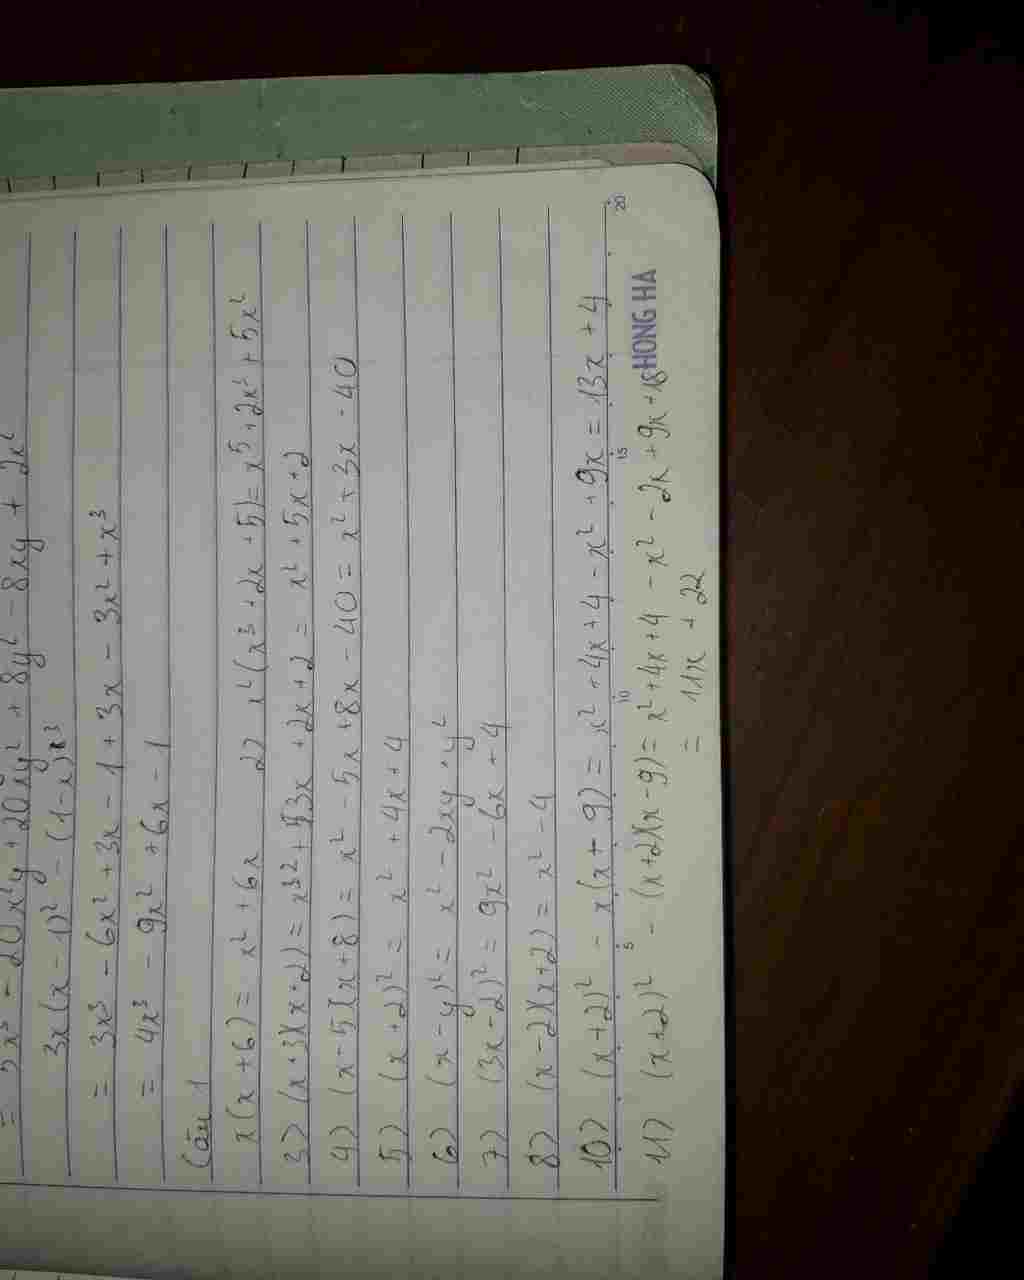 = 5x³ - 20x²y + 20xy² + 8y² - 8xy + 2x²
3x(x - 1)² - (1 - x)x³
= 3x³ - 6x² + 3x - 1 + 3x - 3x² + x³
= 4x³ - 9x² + 6x - 1
Câu 1
x(x + 6) = x² + 6x 2) x²(x³ + 2x + 5) = x⁵ + 2x³ + 5x²
3) (x + 3)(x + 2) = x² + 3x + 2x + 2 = x² + 5x + 2
4) (x - 5)(x + 8) = x² - 5x + 8x - 40 = x² + 3x - 40
5) (x + 2)² = x² + 4x + 4
6) (x - y)² = x² - 2xy + y²
7) (3x - 2)² = 9x² - 6x + 4
8) (x - 2)(x + 2) = x² - 4
10) (x + 2)² - x(x + 9) = x² + 4x + 4 - x² + 9x = 13x + 4
11) (x + 2)² - (x + 2)(x - 9) = x² + 4x + 4 - x² - 2x + 9x + 18
= 11x + 22
5 10 15 20
HONG HA